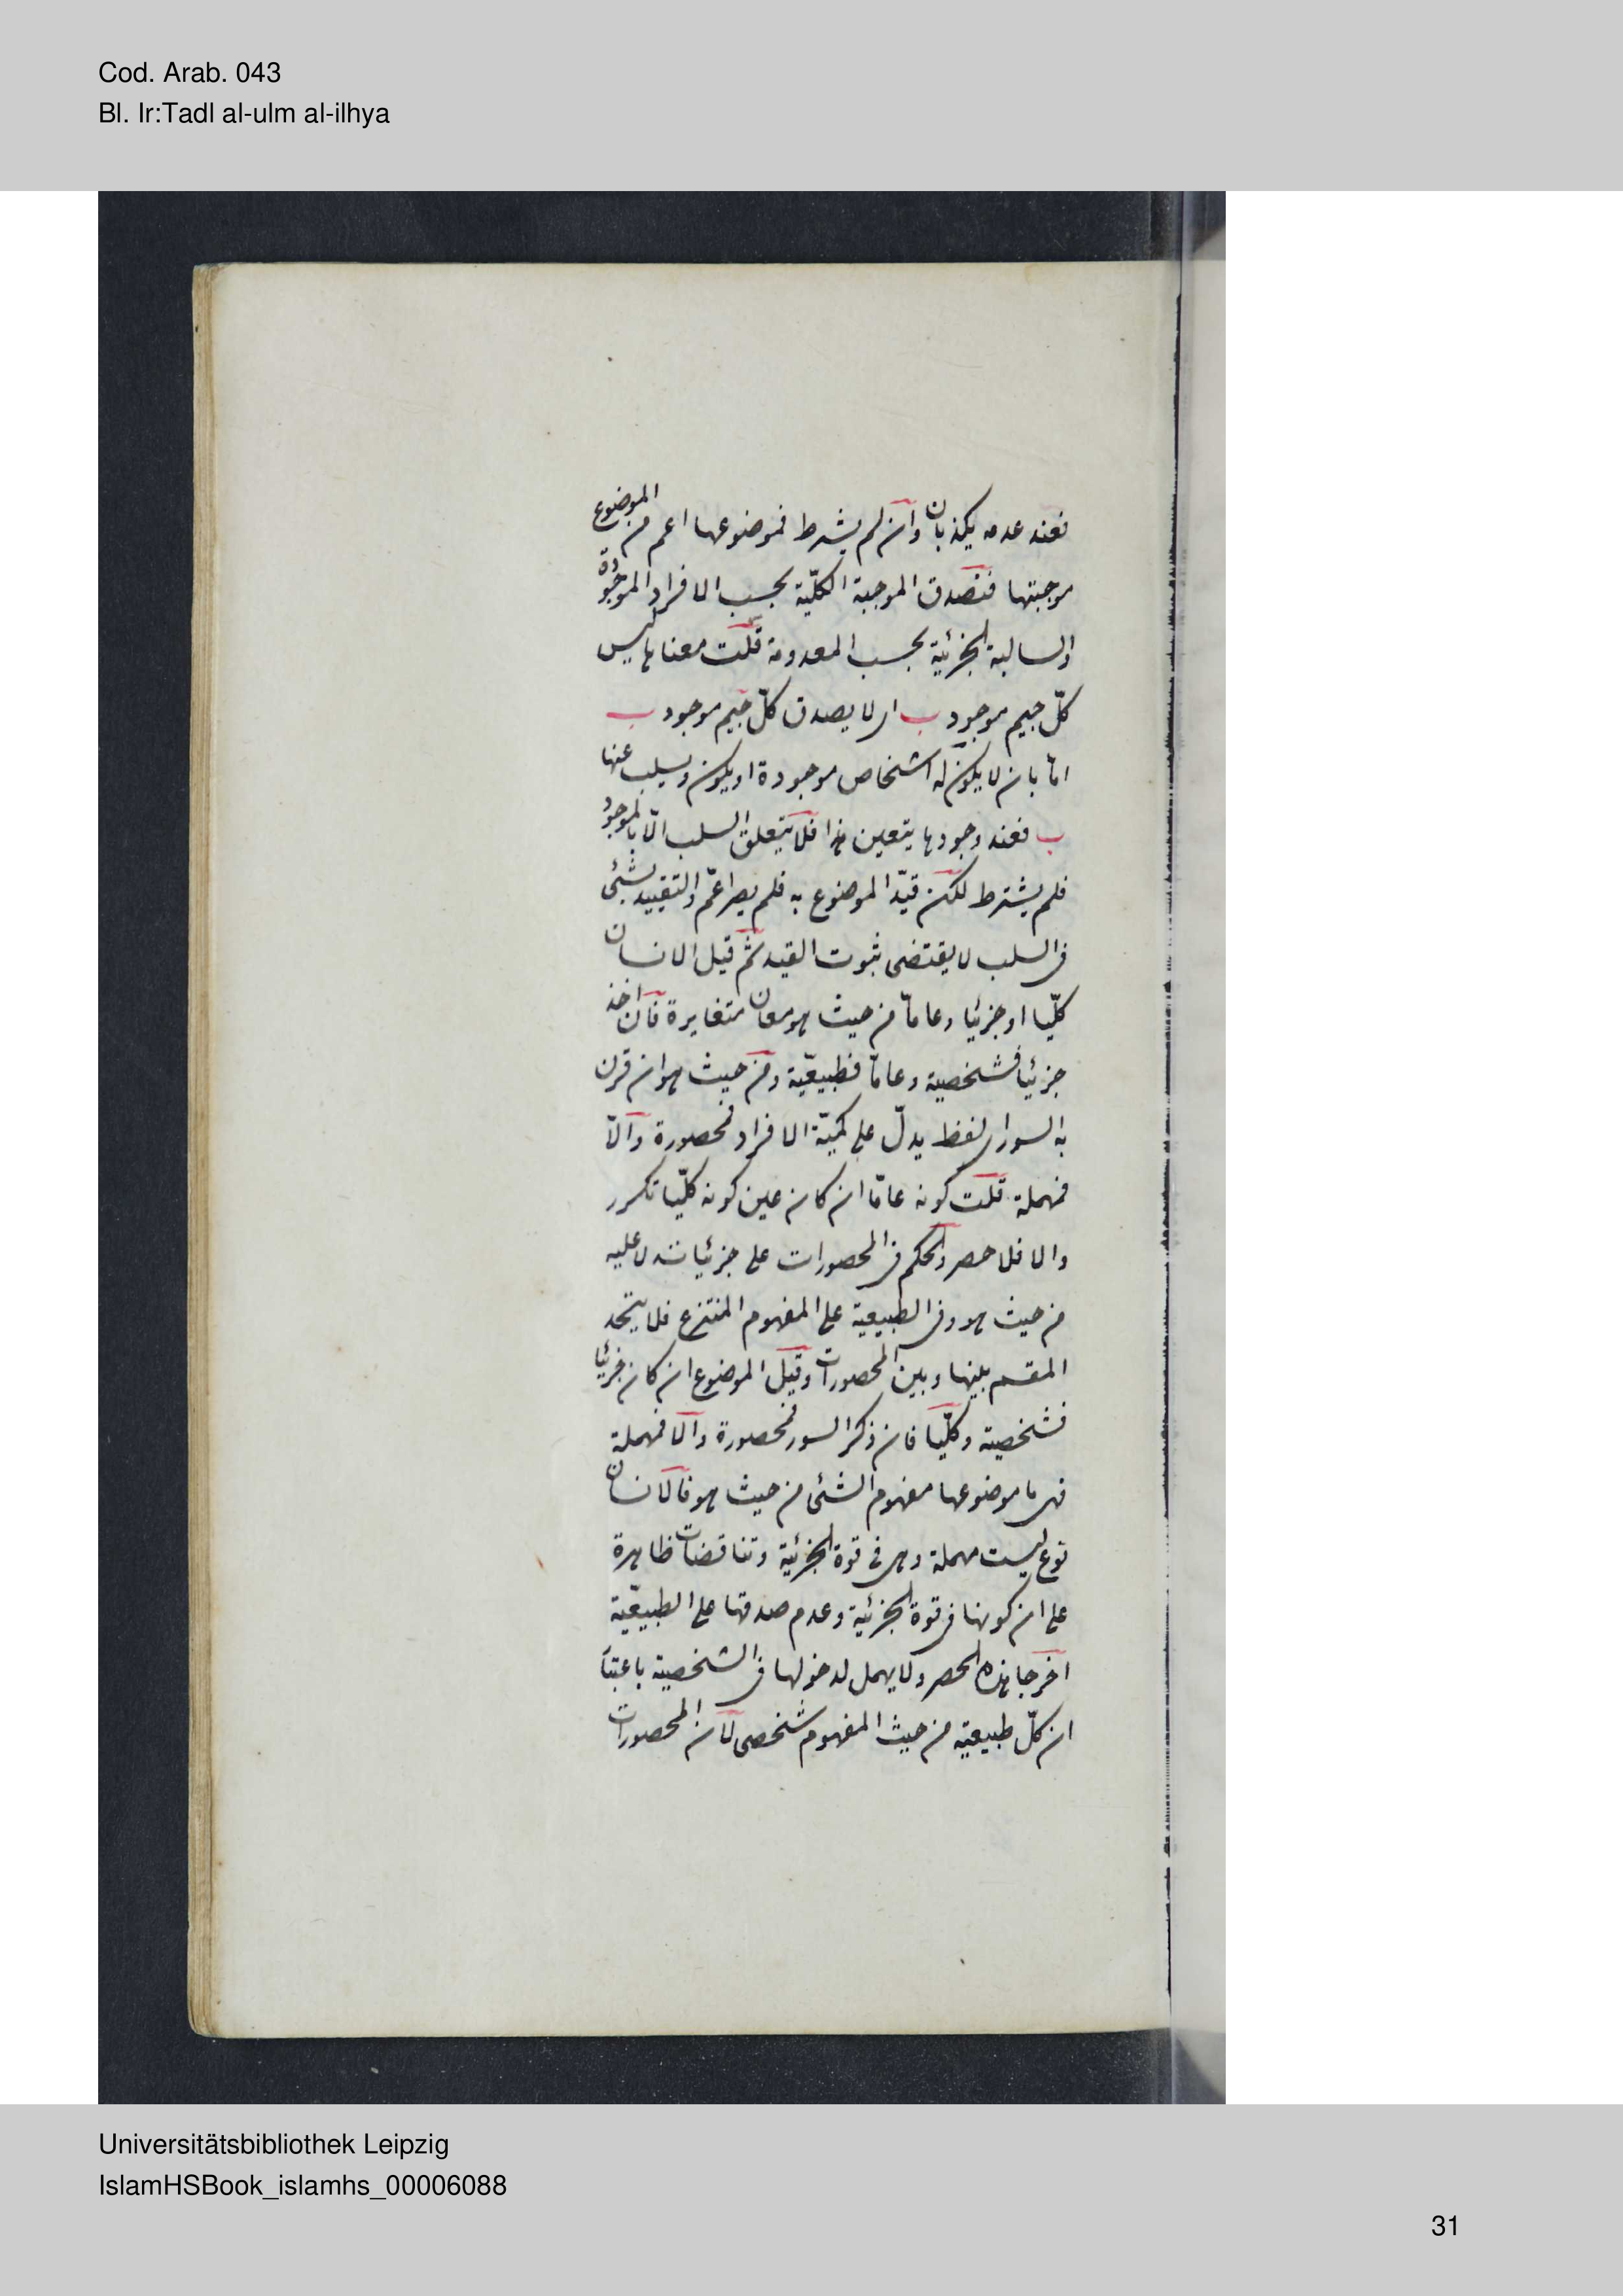 Cod. Arab. 043
Bl. Ir:Tadl al-ulm al-ilhya
فعند عدمه يكذبان وان لم يشرط فموضوعها اعم من الموضوع
موجبتها فتصدق الموجبة الكلّية بحسب الافراد الموجودة
والسالبة الجزئية بحسب المعدومة قلت معناها ليس
كلّ جيم موجود ب اى لا يصدق كلّ جيم موجود ب
امّا بان لا يكون له اشخاص موجودة او يكون ويسلب عنها
ب فعند وجودها يتعين هذا فلا يتعلق السلب الّا بالموجود
فلم يشترط لكن قيّد الموضوع به فلم يصر اعمّ والتقييد بشئ
فى السلب لا يقتضى ثبوت القيد ثم قيل الانسان
كلّيا او جزئيا وعامّا من حيث هو معان متغايرة فان اخذ
جزئيا فشخصية وعامّا فطبيعيّة ومن حيث هو ان قرن
به السور اى لفظ يدلّ على كميّة الافراد فمحصورة والّا
فمهملة قلت كونه عامّا ان كان عين كونه كلّيا تكرر
والا فلا حصر والحكم فى المحصورات على جزئياته لا عليه
من حيث هو وفى الطبيعية على المفهوم المنتزع فلا يتحد
المقسم بينها وبين المحصورات وقيل الموضوع ان كان جزئيا
فشخصية وكلّيا فان ذكر السور فمحصورة والّا فمهملة
فهى ما موضوعها مفهوم الشئ من حيث هو فالانسان
نوع ليست مهملة وهى فى قوة الجزئية وتناقضات ظاهرة
على ان كونها فى قوة الجزئية وعدم صدقها على الطبيعيّة
اخرجا هذه الحصر ولا يهمل لدخولها فى الشخصية باعتبا
ان كلّ طبيعية من حيث المفهوم شخصى لان المحصورات
Universitätsbibliothek Leipzig
IslamHSBook_islamhs_00006088
31